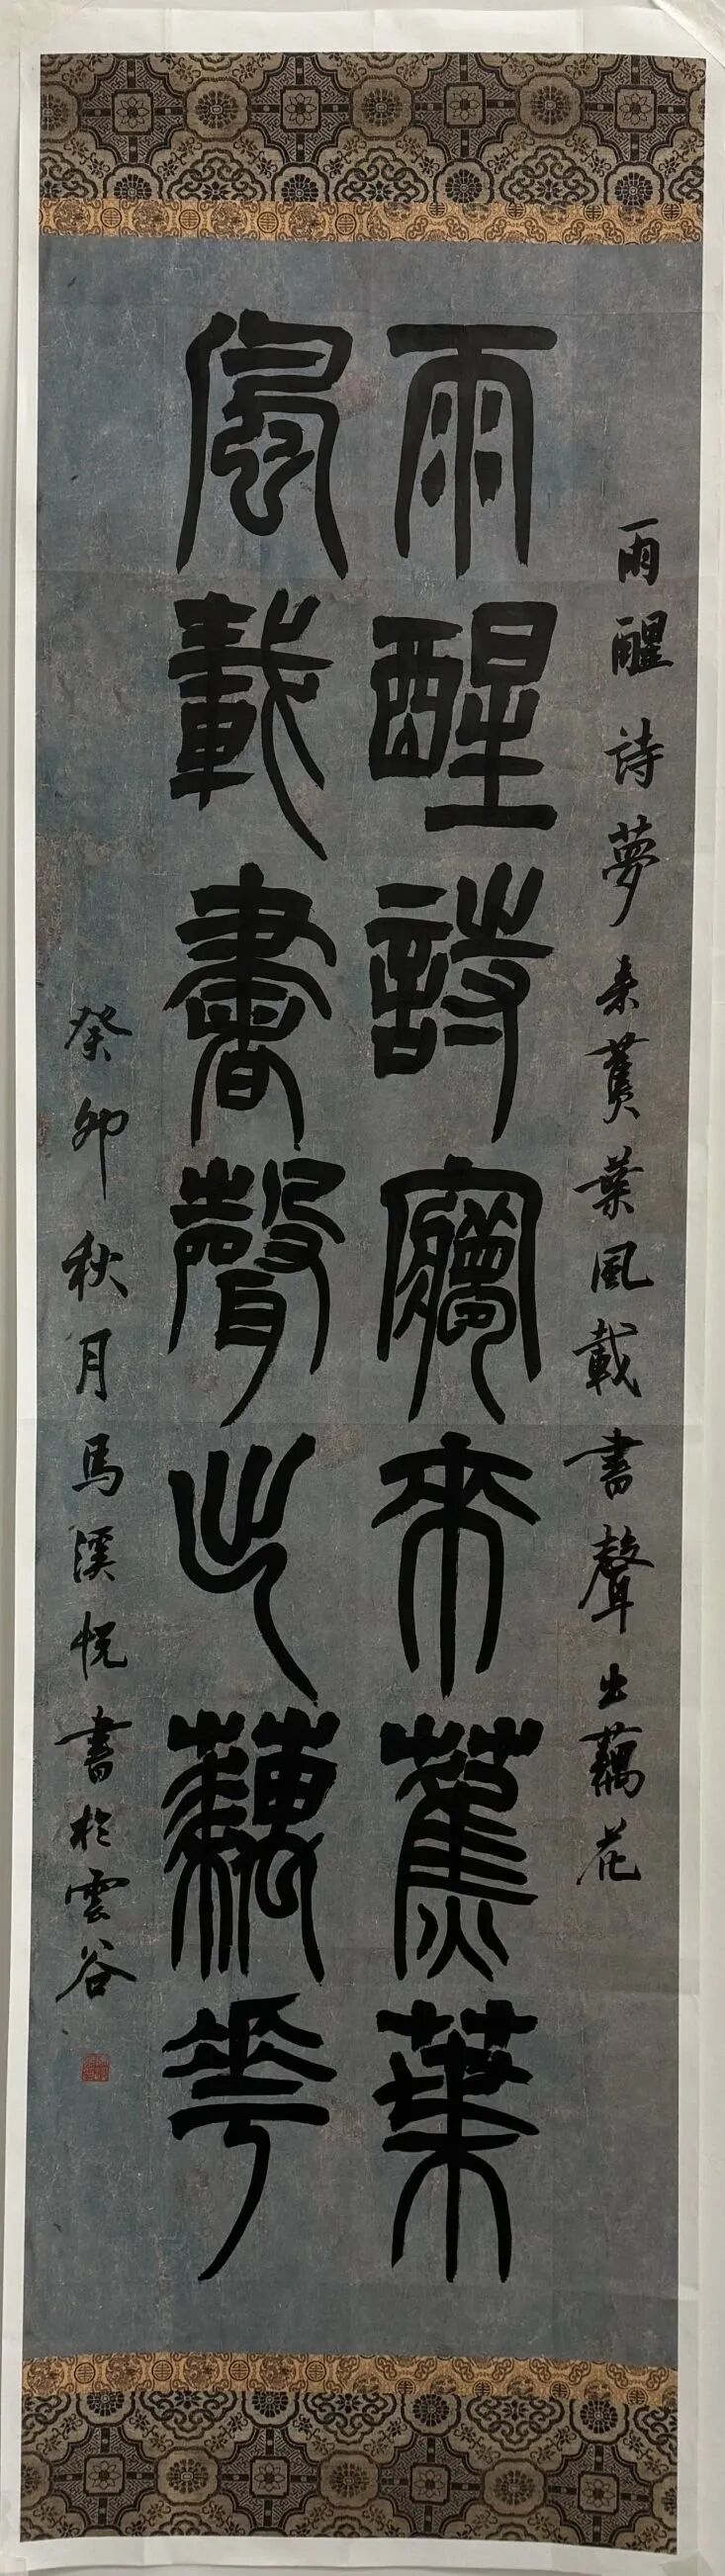 雨醒詩夢来蕉葉風載書聲出藕花
雨醒詩夢來蕉葉
風載書聲出藕花
癸卯秋月馬溪悅書於雲谷